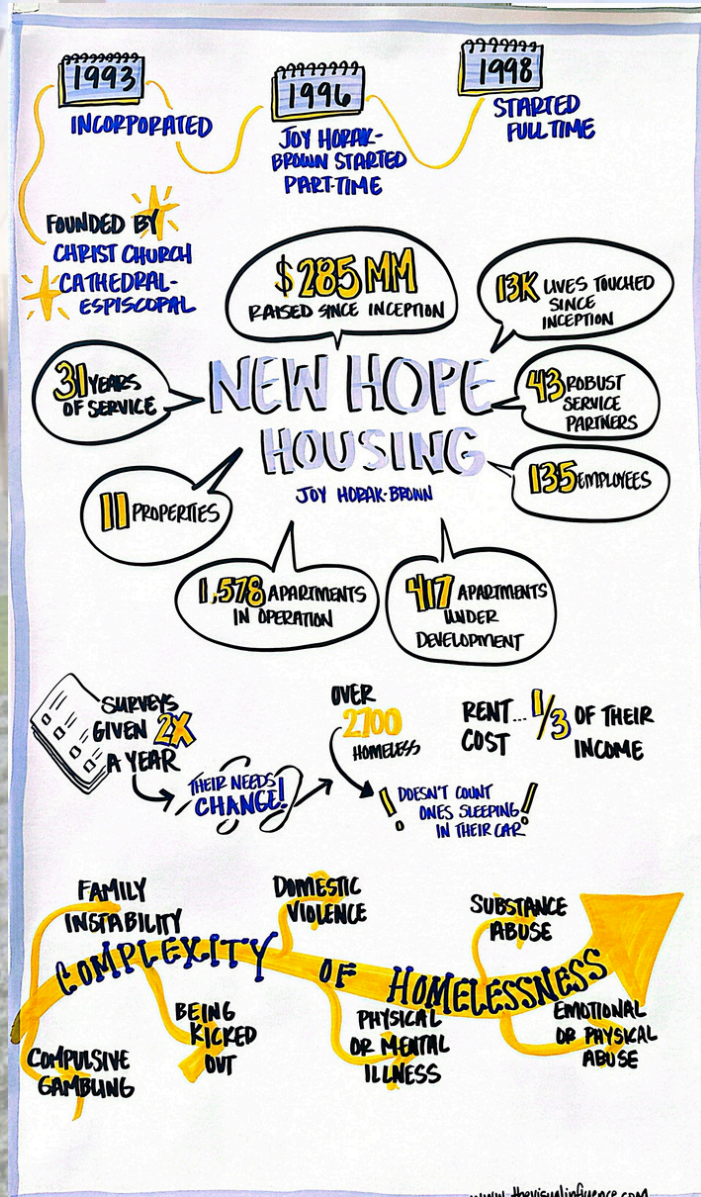 1993
INCORPORATED
1996
JOY HORAK-
BROWN STARTED
PART-TIME
1998
STARTED
FULL TIME
FOUNDED BY
CHRIST CHURCH
CATHEDRAL-
ESPISCOPAL
$285 MM
RAISED SINCE INCEPTION
13K LIVES TOUCHED
SINCE
INCEPTION
31 YEARS
OF SERVICE
NEW HOPE
HOUSING
JOY HORAK-BROWN
43 ROBUST
SERVICE
PARTNERS
135 EMPLOYEES
11 PROPERTIES
1,578 APARTMENTS
IN OPERATION
417 APARTMENTS
UNDER
DEVELOPMENT
SURVEYS
GIVEN 2X
A YEAR
THEIR NEEDS
CHANGE!
OVER
2700
HOMELESS
! DOESN'T COUNT
ONES SLEEPING !
IN THEIR CAR
RENT... 1/3 OF THEIR
COST INCOME
COMPLEXITY OF HOMELESSNESS
FAMILY
INSTABILITY
DOMESTIC
VIOLENCE
SUBSTANCE
ABUSE
COMPULSIVE
GAMBLING
BEING
KICKED
OUT
PHYSICAL
OR MENTAL
ILLNESS
EMOTIONAL
OR PHYSICAL
ABUSE
www.thevisualinfluence.com